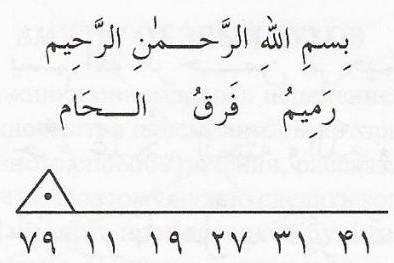 بسمِ اللهِ الرَّحــمٰنِ الرَّحِيمِ
رَمِيمُ فَرَقُ الــحَامَ
٧٩ ١١ ١٩ ٢٧ ٣١ ٤